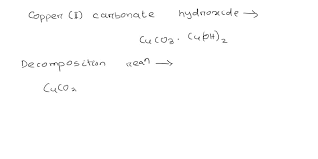 Copper (I) carbonate hydroxide →
CuCO3 . Cu(OH)2
Decomposition reaⁿ →
CuCO2